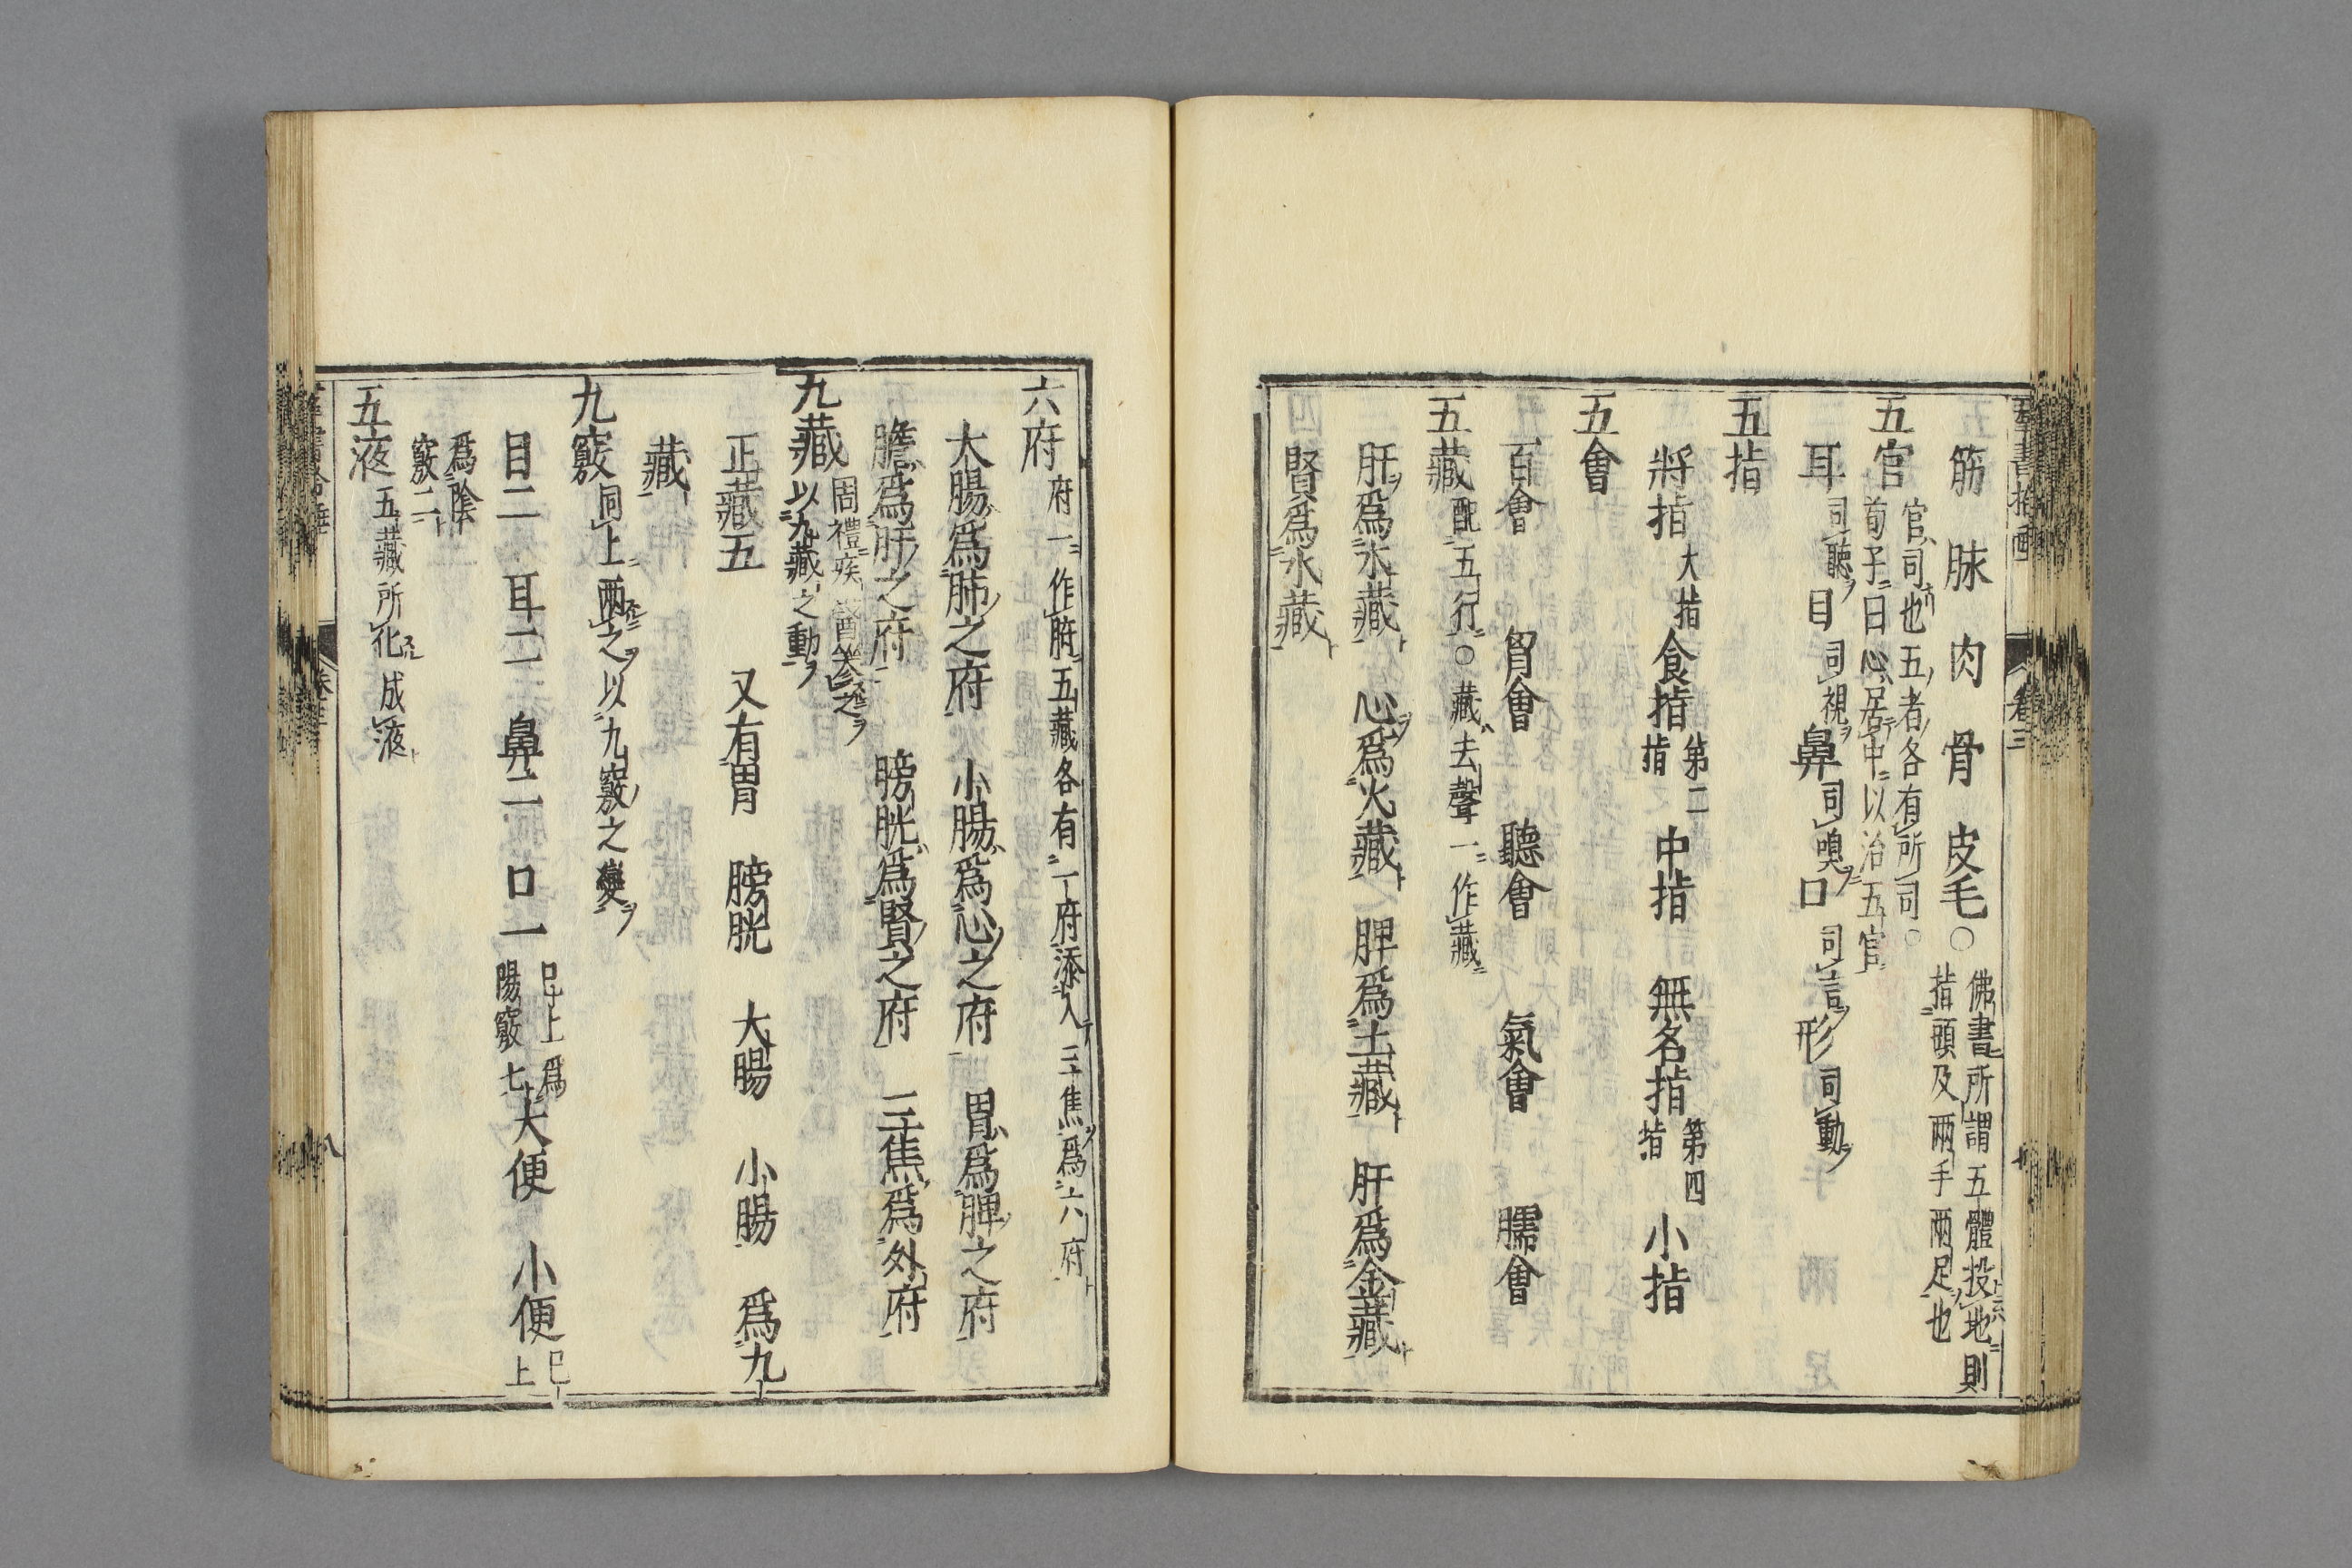 筋 脉 肉 骨 皮毛○佛書所謂五體投地則指頭及兩手兩足也
五官官司也五者各有所司○荀子曰心居中以治五官
耳司聽目司視鼻司嗅口司言形司動
五指
將指大指食指第二指中指 無名指第四指小指
五會
百會 胷會 聽會 氣會 臑會
五藏配五行○藏去聲一作臓
肝爲木藏 心爲火藏 脾爲土藏 肝爲金藏
腎爲水藏
卷三
六府府一作腑五藏各有一府添入三焦爲六府
大腸爲肺之府 小腸爲心之府 胃爲脾之府
膽爲肝之府 膀胱爲腎之府 三焦爲外府
九藏周禮疾醫參之以九藏之動
正藏五 又有胃 膀胱 大腸 小腸 爲九
藏
九竅同上兩之以九竅之變
目二 耳二 鼻二 口一已上爲陽竅七大便 小便已上
爲陰竅二
五液五藏所化成液
八